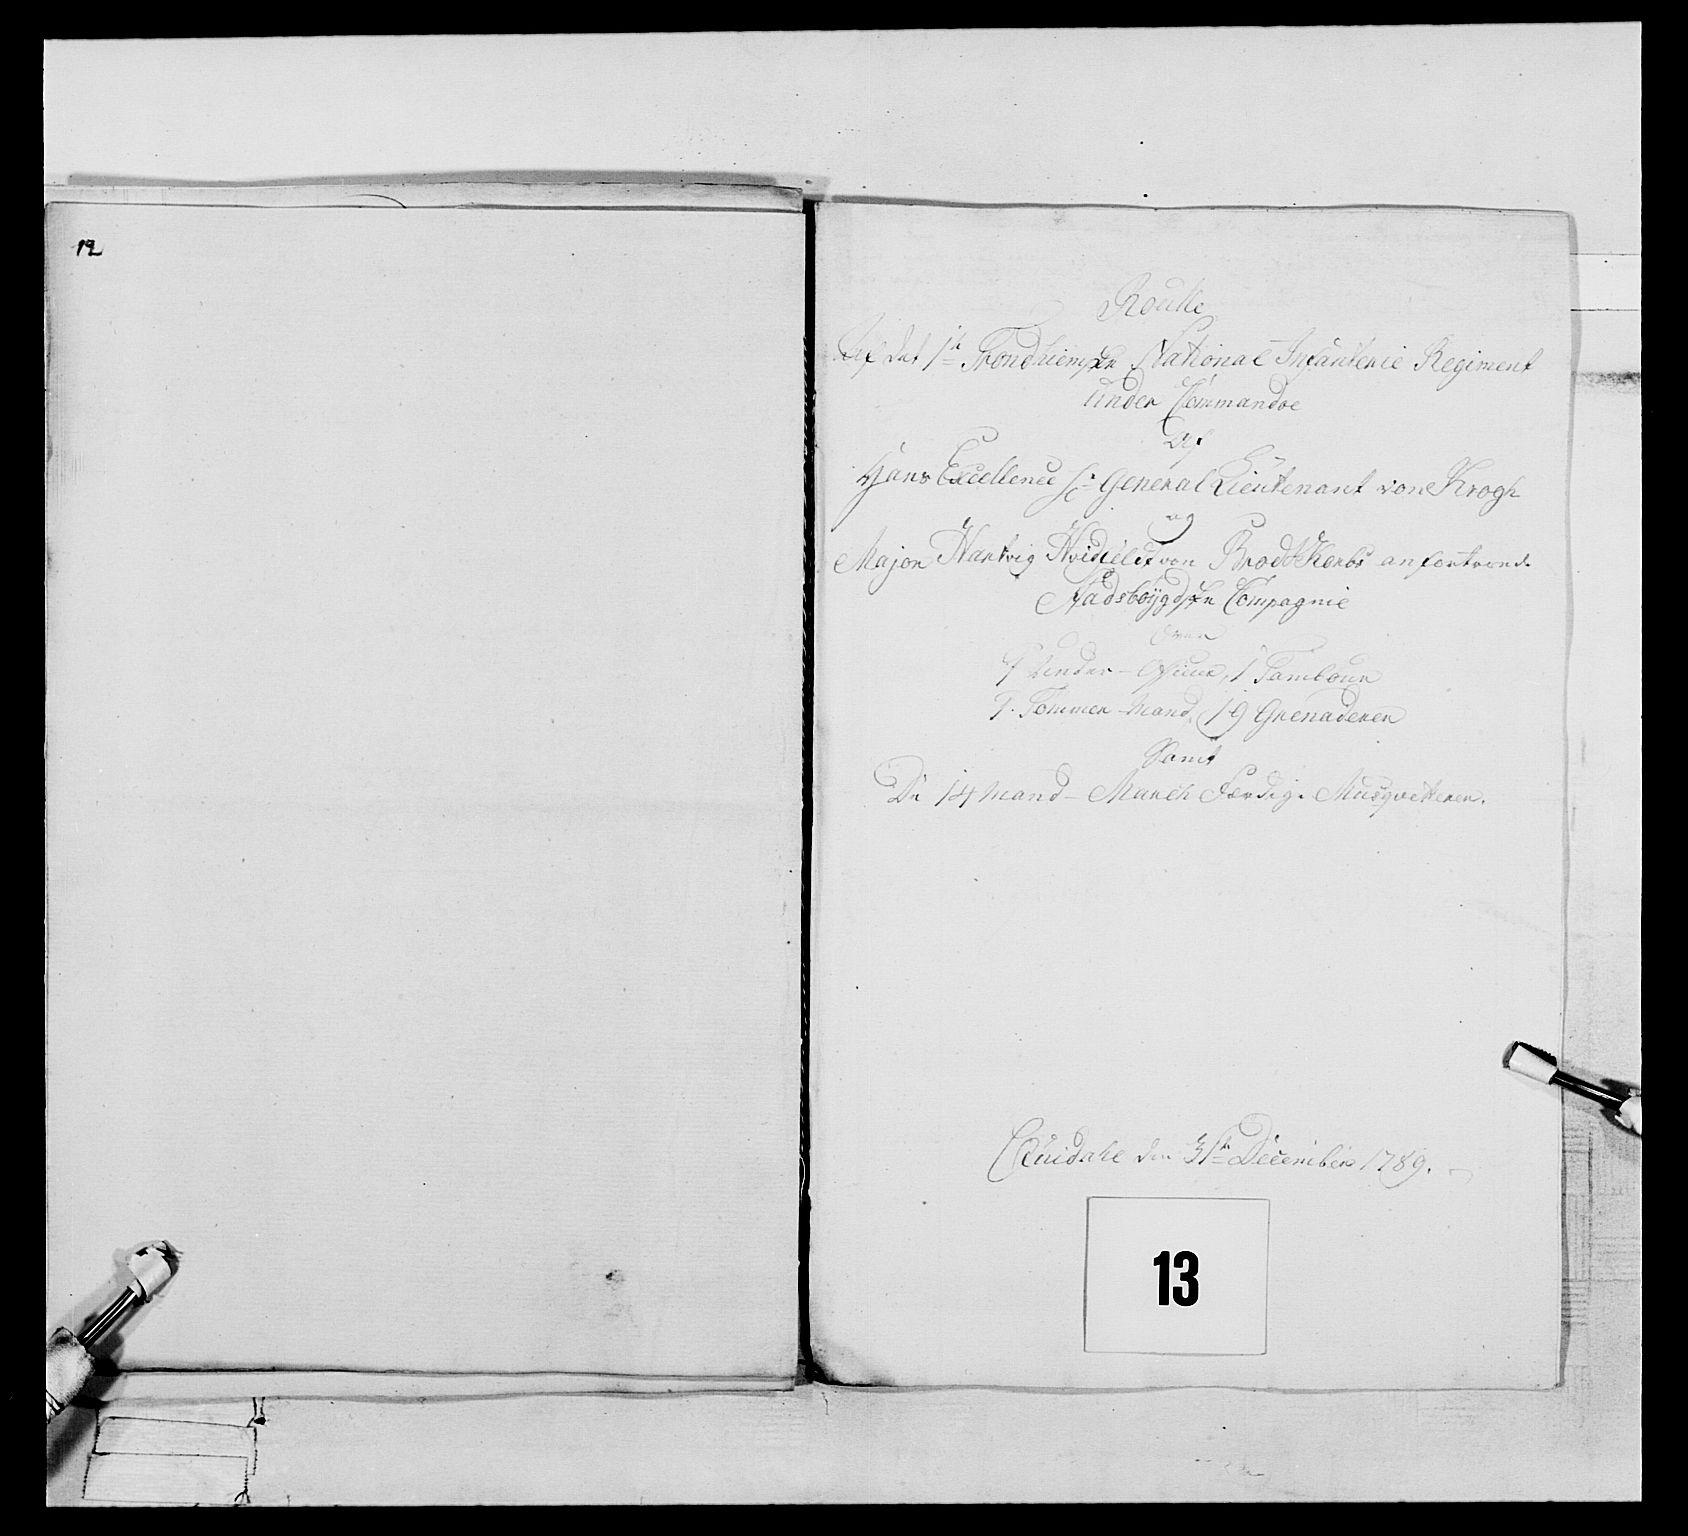 12
Roulle
Af det 1te Trondhiemske National Infanterie Regiment
under Commandoe
Af
Hans Excellence Hr General Lieutenant von Krogh
og
Major Hartvig von BrodtKorbs anfortroede
Stadsbøygdske Compagnie
Over
Under-Officier, 1 Tambour
Tømmer-Mand, 19 Grenaderer
Samt
De 14 Mand March Færdige Musqvetterer.
den 31te December 1789.
13